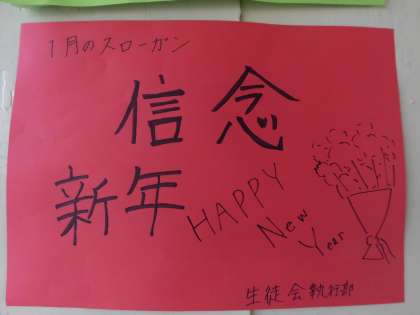 1月のスローガン
信念
新年
HAPPY
New
Year
生徒会執行部